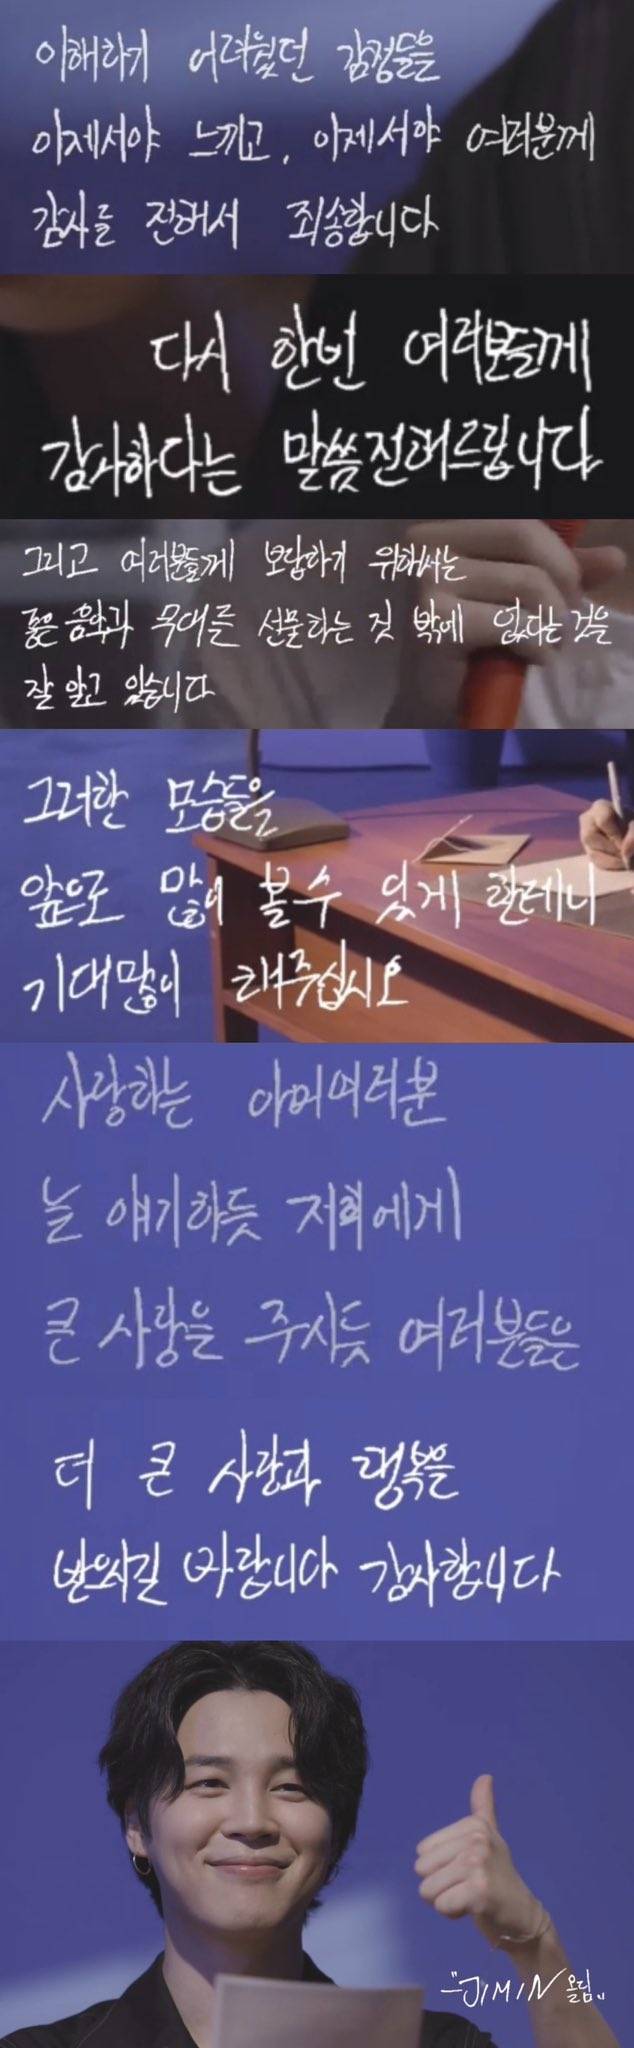 이해하기 어려웠던 감정들을
이제서야 느끼고, 이제서야 여러분께
감사를 전해서 죄송합니다
다시 한번 여러분들께
감사하다는 말씀전해드립니다
그리고 여러분들께 보답하기 위해서는
좋은 음악과 무대를 선물하는 것 밖에 없다는 것을
잘 알고 있습니다
그러한 모습들을
앞으로 많이 볼 수 있게 할테니
기대많이 해주십시오
사랑하는 아미여러분
늘 얘기하듯 저희에게
큰 사랑을 주시듯 여러분들은
더 큰 사랑과 행복을
받으시길 바랍니다 감사합니다
"JIMIN 올림"